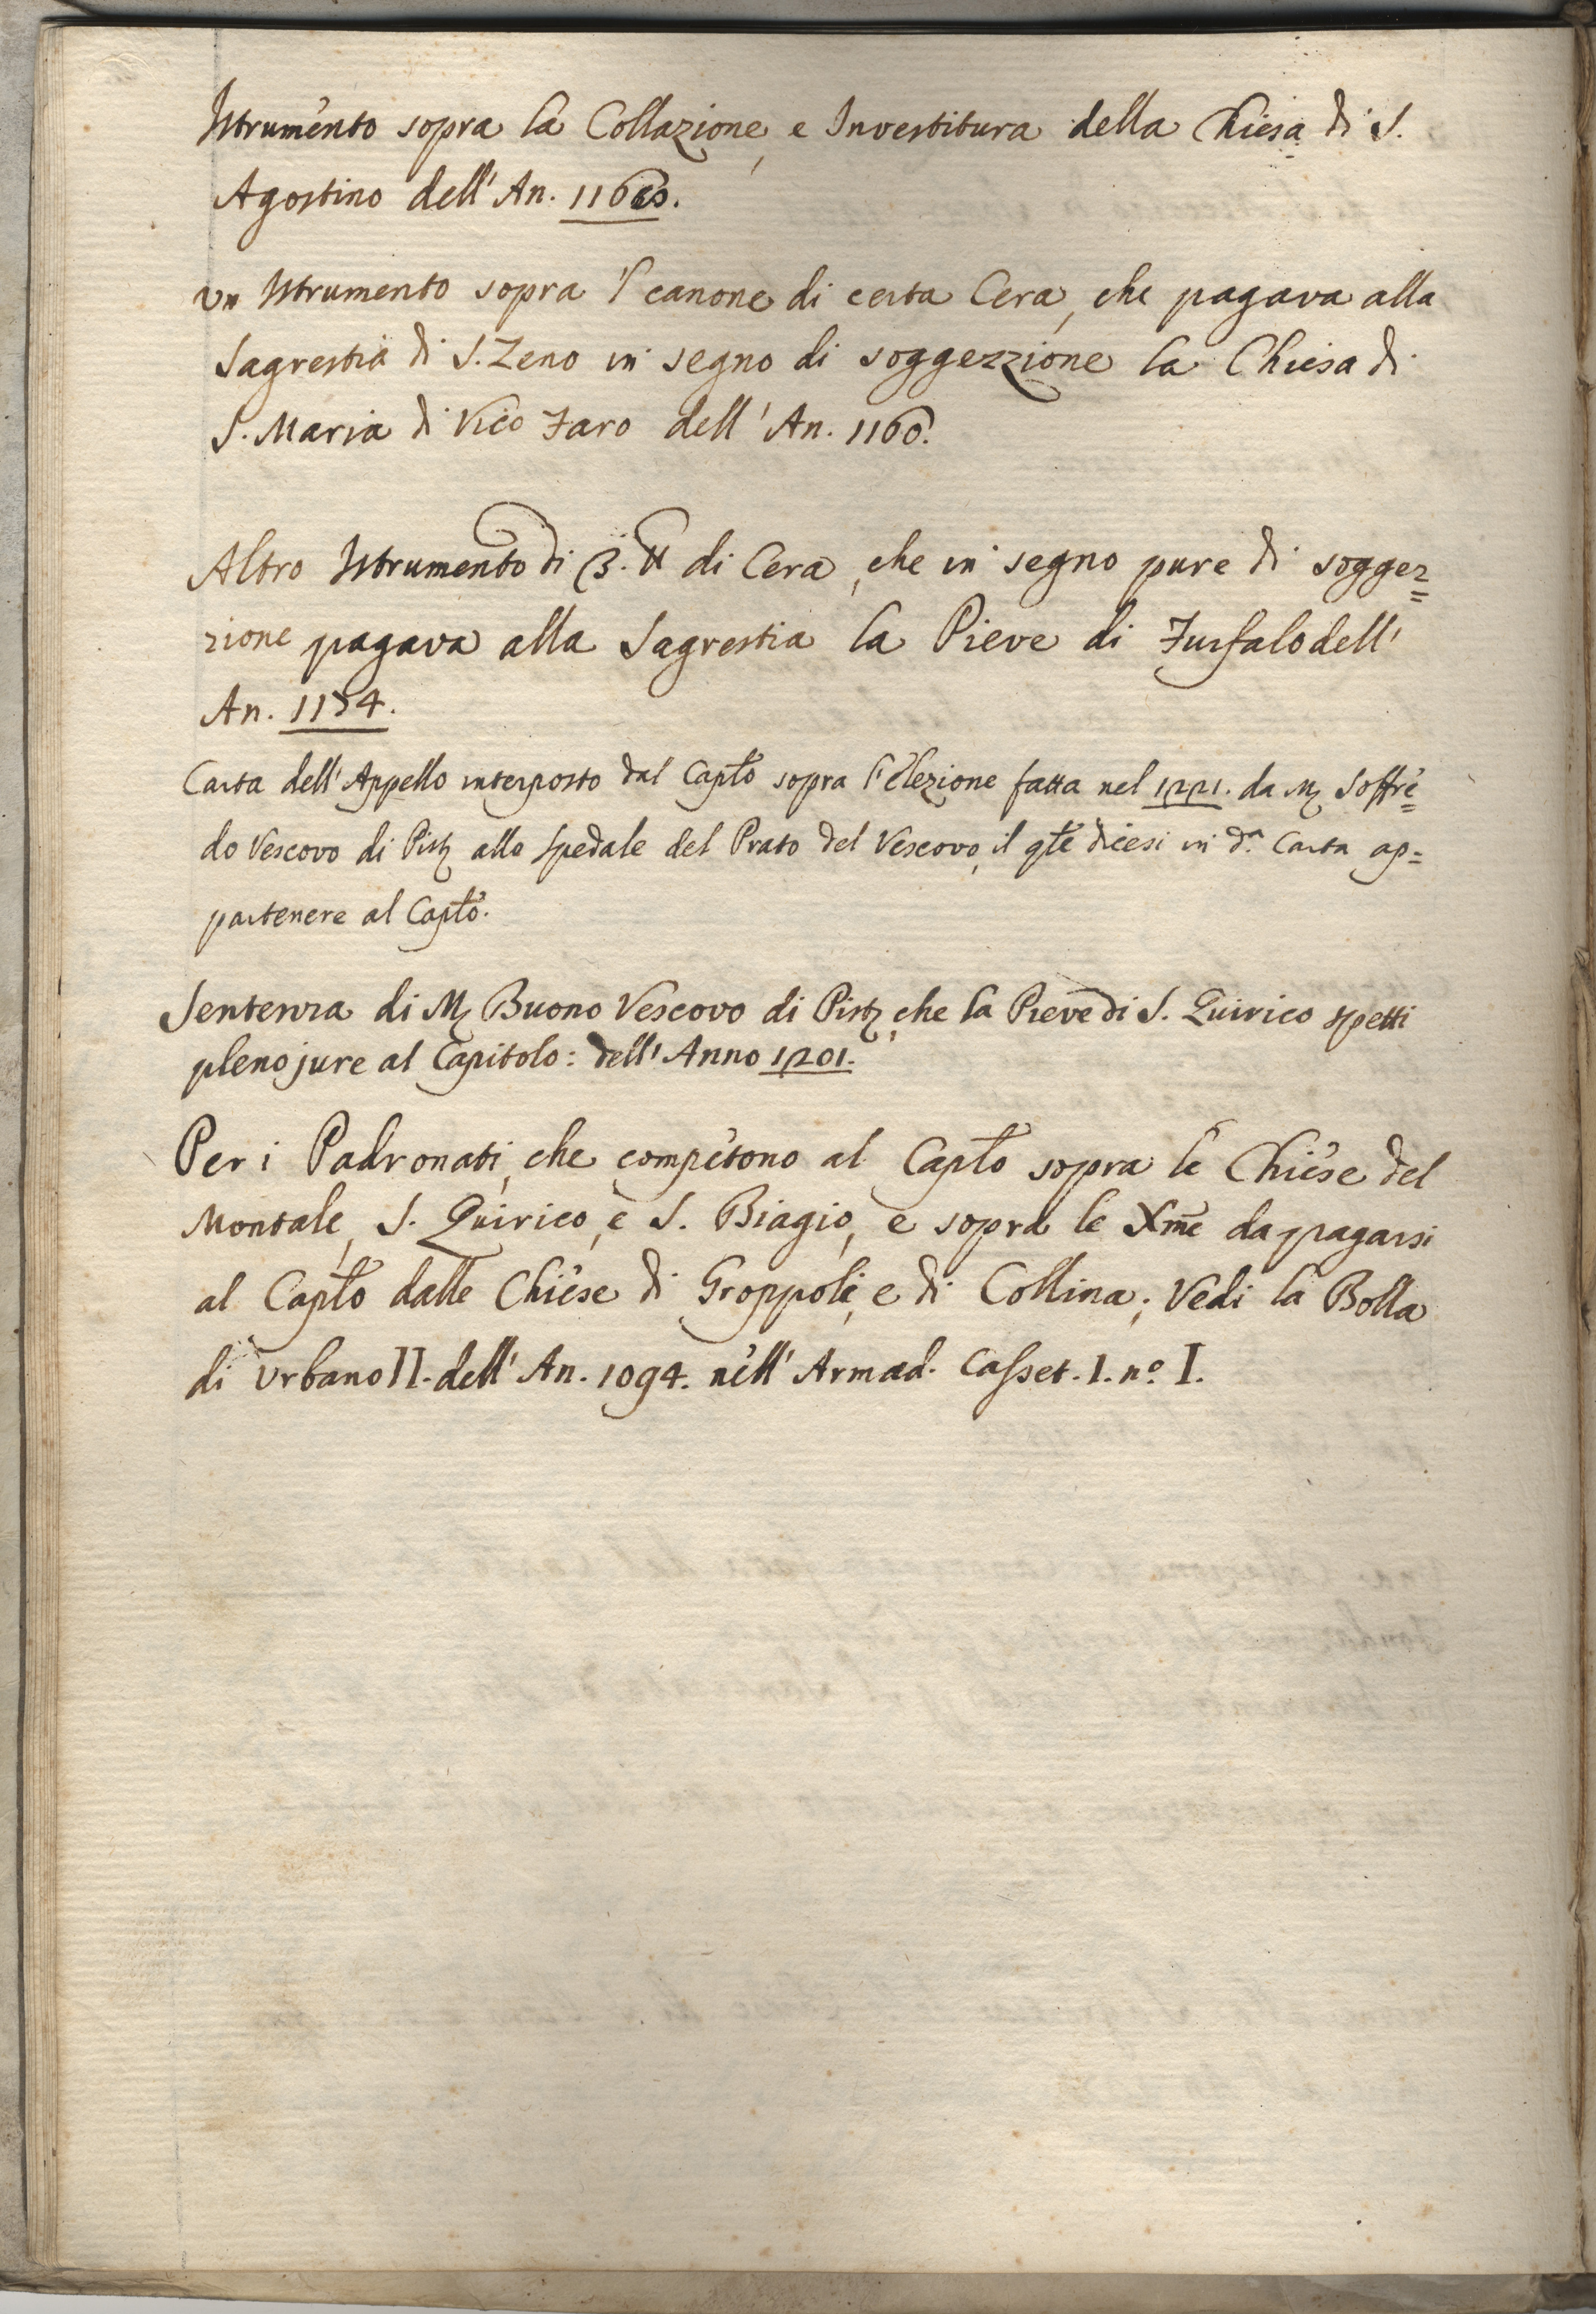 Istrumento sopra la Collazione, e Investitura della Chiesa di S.
Agostino dell' An.
Un Istrumento sopra il canone di certa Cera, che pagava alla
Sagrestia di S. Zeno in segno di soggezzione la Chiesa di
S. Maria di Vico Faro dell' An. 1160.
Altro Istrumento di di Cera, che in segno pure di soggez=
zione pagava alla Sagrestia la Pieve di Furfalo dell'
An. 1154.
Carta dell' Appello interposto dal Caplo sopra l'elezione fatta nel 1221. da M. Soffré=
do Vescovo di Pist. allo Spedale del Prato del Vescovo, il qle dicesi in da. Carta ap=
partenere al Caplo.
Sentenza di M. Buono Vescovo di Pist., che la Pieve di S. Quirico spetti
pleno jure al Capitolo: dell' Anno 1201.
Per i Padronati, che compétono al Caplo sopra le Chiése del
Montale, S. Quirico, e S. Biagio, e sopra le Xme da pagarsi
al Caplo dalle Chiése di Groppoli, e di Collina; Vedi la Bolla
di Urbano II. dell' An. 1094. nell' Armad. Casset. I. no. I.